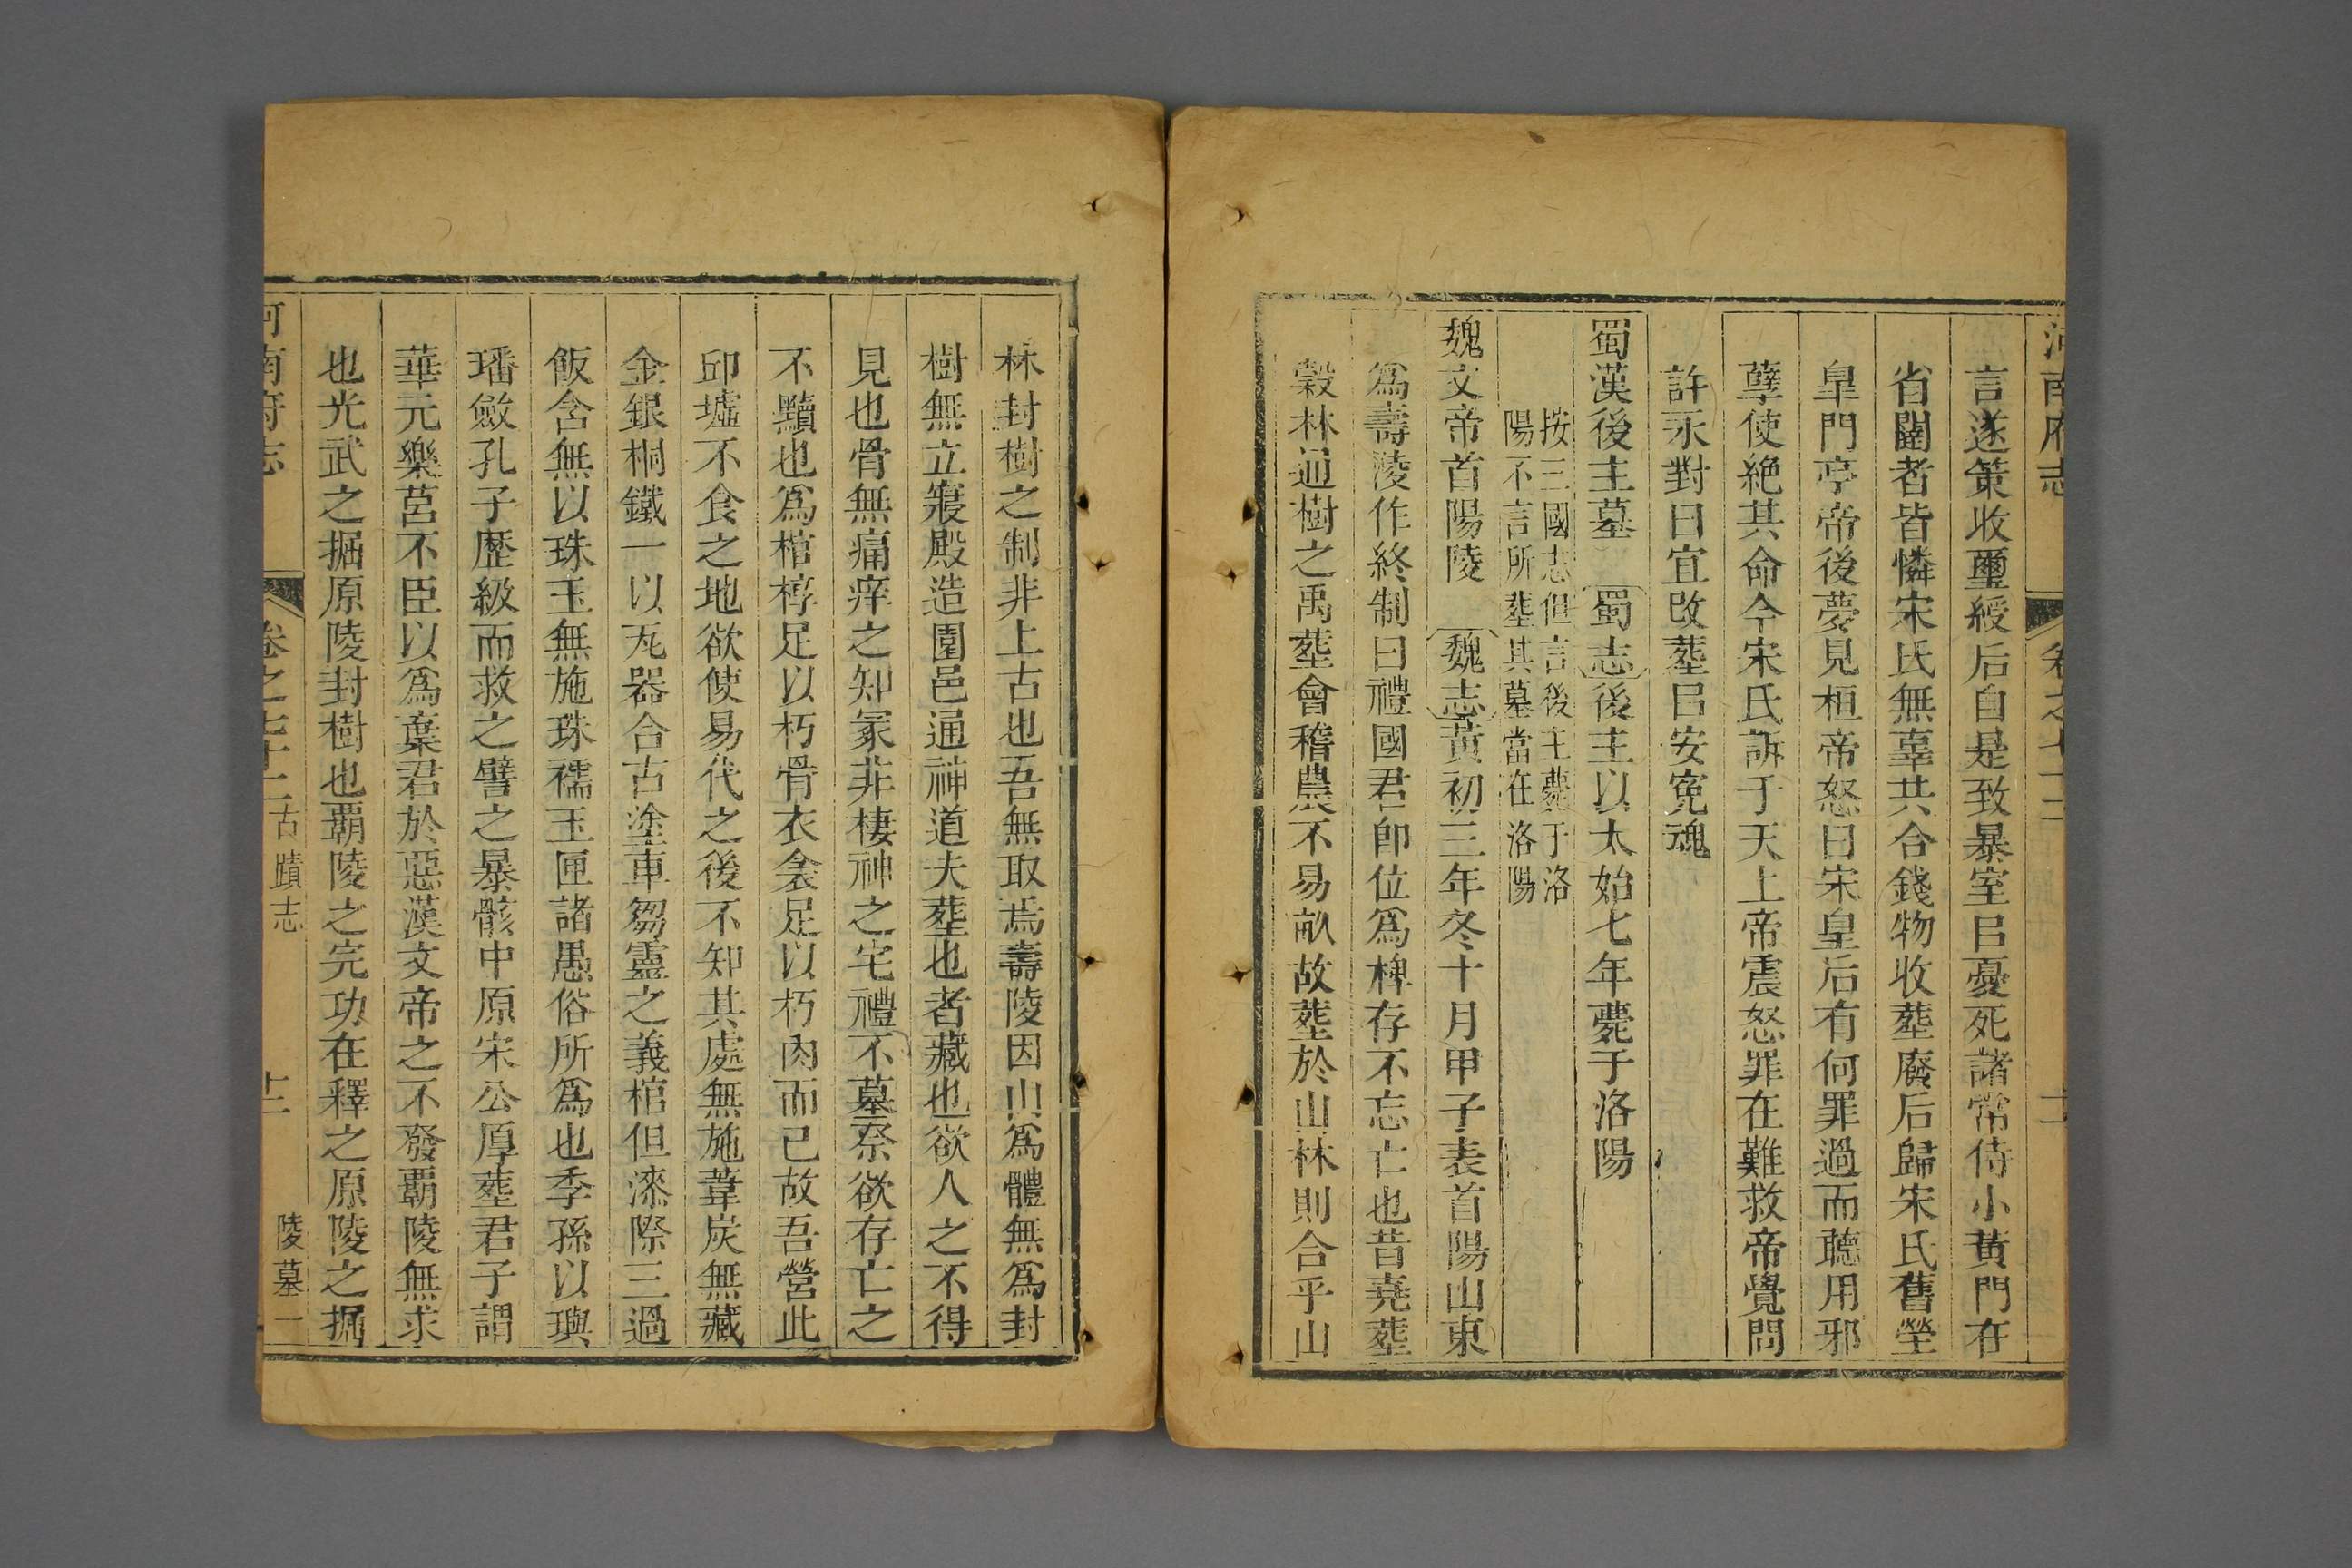 河南府志 卷之七十二 十一
言遂策收璽綬后自是致暴室㠯憂死諸常侍小黃門在
省闥者皆憐宋氏無辜共合錢物收塟廢后歸宋氏舊塋
皐門亭帝後夢見桓帝怒曰宋皇后有何罪過而聽用邪
孽使絶其命今宋氏訴于天上帝震怒罪在難救帝覺問
許永對曰宜改塟㠯安寃魂
蜀漢後主墓 蜀志後主以太始七年薨于洛陽
按三國志但言後主薨于洛
陽不言所塟其墓當在洛陽
魏文帝首陽陵 魏志黃初三年冬十月甲子表首陽山東
爲壽陵作終制曰禮國君卽位爲椑存不忘亡也昔堯塟
穀林通樹之禹塟會稽農不易畝故塟於山林則合乎山
林封樹之制非上古也吾無取焉壽陵因山爲體無爲封
樹無立寢殿造園邑通神道夫塟也者藏也欲人之不得
見也骨無痛痒之知冡非棲神之宅禮不墓祭欲存亡之
不黷也爲棺椁足以朽骨衣衾足以朽肉而已故吾營此
邱墟不食之地欲使易代之後不知其處無施葦炭無藏
金銀桐鐵一以瓦器合古塗車芻靈之義棺但漆際三過
飯含無以珠玉無施珠襦玉匣諸愚俗所爲也季孫以璵
璠斂孔子歴級而救之譬之暴骸中原宋公厚塟君子謂
華元樂莒不臣以爲棄君於惡漢文帝之不發覇陵無求
也光武之掘原陵封樹也覇陵之完功在釋之原陵之掘
河南府志 卷之七十二 古蹟志 十二 陵墓一